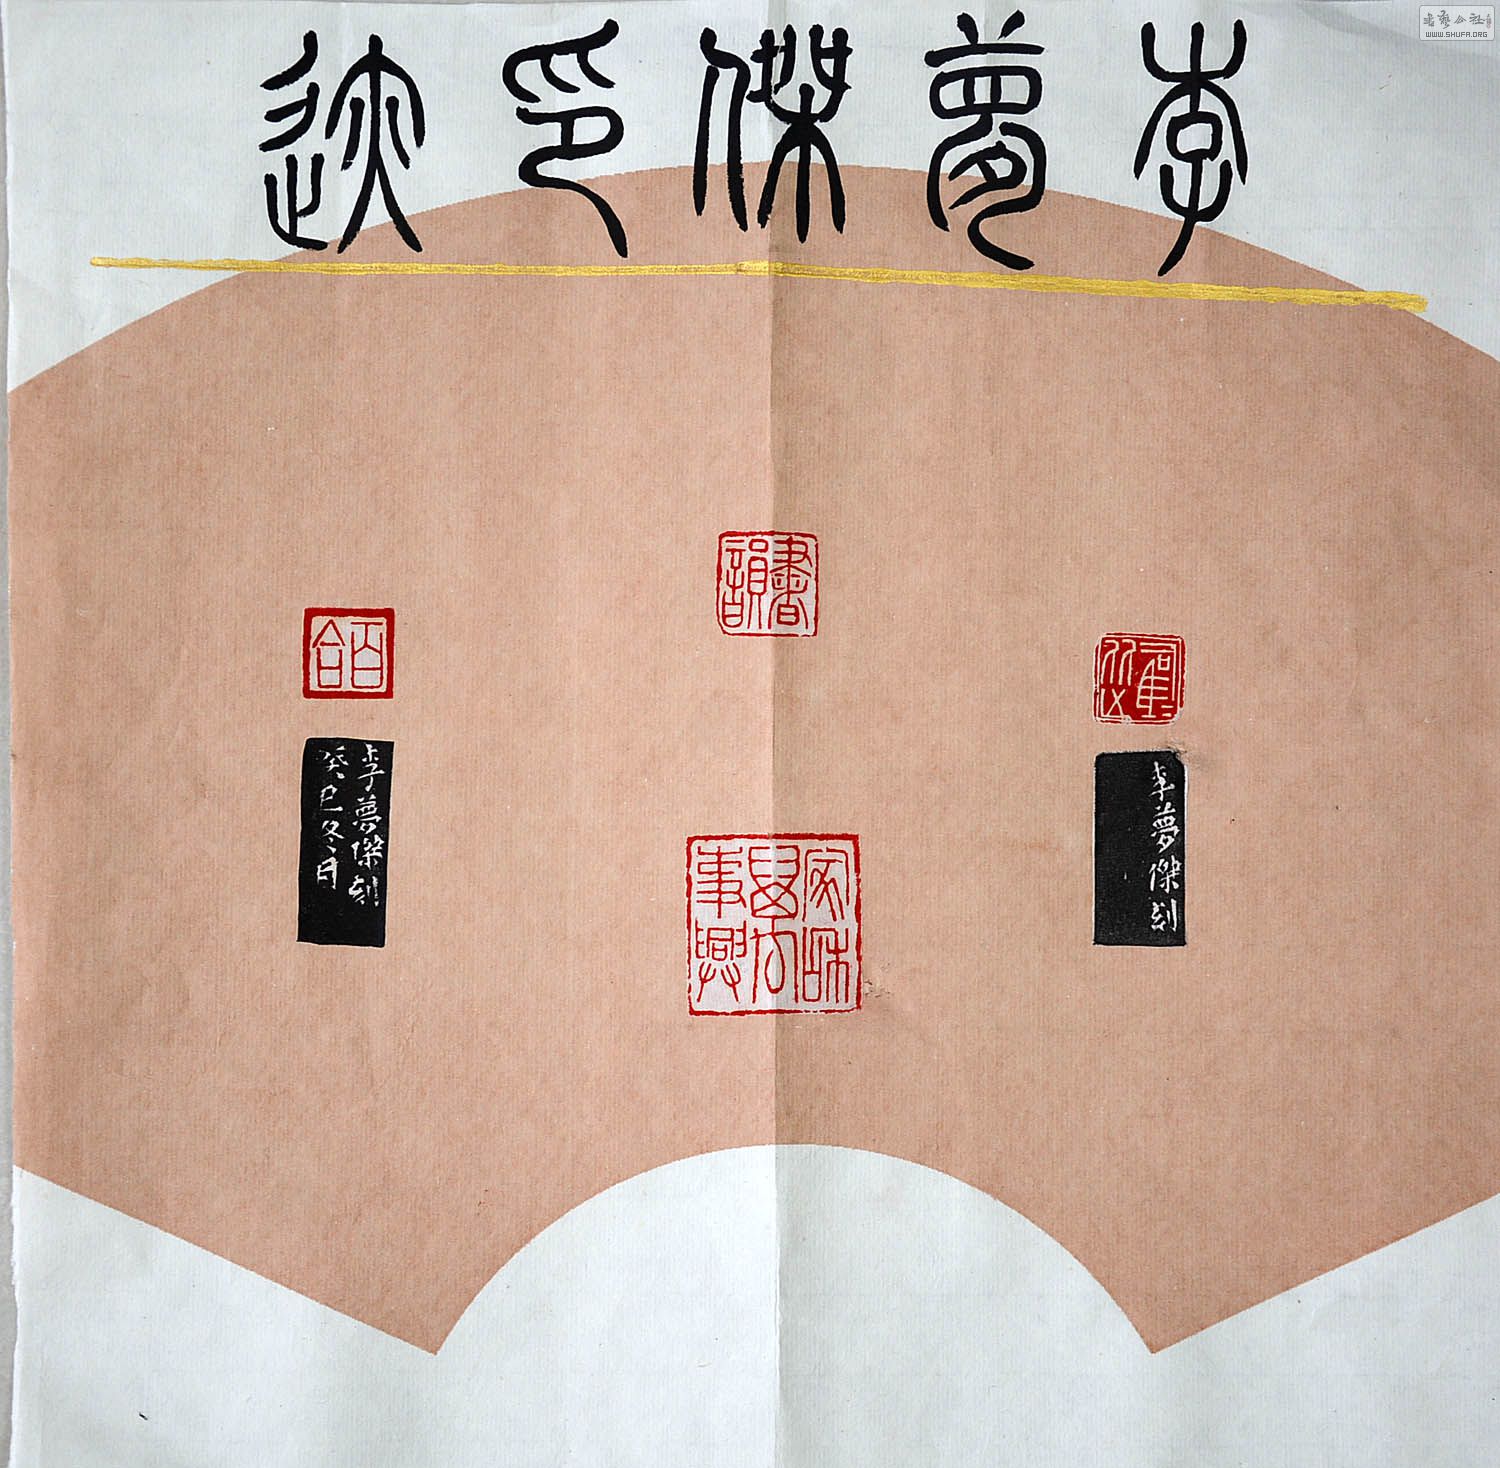 李夢傑印迹
書韻
百合
家和萬事興
李夢傑刻
李夢傑刻
癸巳冬月
書藝公社
WWW.SHUFA.ORG